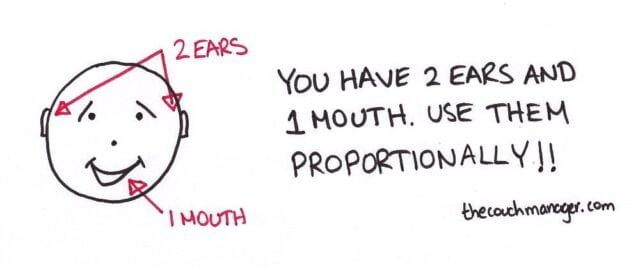 2 EARS
YOU HAVE 2 EARS AND
1 MOUTH. USE THEM
PROPORTIONALLY!!
1 MOUTH
thecouchmanager.com